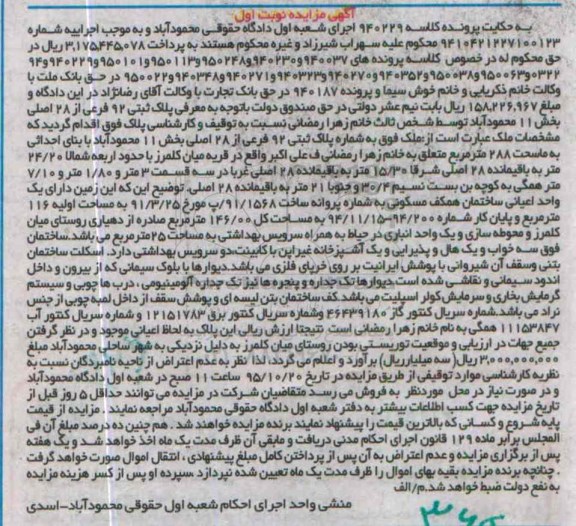 آگهی مزایده نوبت اول
به حکایت پرونده کلاسه ۹۴۰۲۲۹ اجرای شعبه اول دادگاه حقوقی محمودآباد و به موجب اجراییه شماره
۹۴۱۰۴۲۱۲۲۷۱۰۰۱۲۳ محکوم علیه سهراب شیرزاد و غیره محکوم هستند به پرداخت ۳,۱۷۵۴۴۵,۰۷۸ ریال در
حق محکوم له در خصوص کلاسه پرونده های ۹۴۰۰۳۷و۹۴۰۲۳۰و۹۵۰۲۴۸و۹۵۰۱۱۳و۹۵۰۱۰۱و۹۴۰۲۲۹و۹۴
۰۳۲۲و۹۵۰۰۶۳و۹۵۰۰۳۸و۹۴۰۳۵۲و۹۴۰۲۷۰و۹۴۰۳۲۳و۹۴۰۲۷۱و۹۴۰۳۴۸و۹۵۰۰۲۲ در حق بانک ملت با
وکالت خانم ذکریایی و خانم خوش سیما و پرونده ۹۴۰۱۸۷ در حق بانک تجارت با وکالت آقای رضانژاد در این دادگاه و
مبلغ ۱۵۸,۲۲۶,۹۶۷ ریال بابت نیم عشر دولتی در حق صندوق دولت باتوجه به معرفی پلاک ثبتی ۹۲ فرعی از ۲۸ اصلی
بخش ۱۱ محمودآباد توسط شخص ثالث خانم زهرا رمضانی نسبت به توقیف و کارشناسی پلاک فوق اقدام گردید که
مشخصات ملک عبارت است از:ملک فوق به شماره پلاک ثبتی ۹۲ فرعی از ۲۸ اصلی بخش ۱۱ محمودآباد با بنای احداثی
به ماسحت ۲۸۸ مترمربع متعلق به خانم زهرا رمضانی ف علی اکبر واقع در قریه میان کلمرز با حدود اربعه شمالا ۲۴/۲۰
متر به باقیمانده ۲۸ اصلی شرقا ۱۵/۳۰ متر به باقیمانده ۲۸ اصلی غربا در سه قسمت ۳ متر و ۱/۸۰ متر و ۷/۱۰
متر همگی به کوچه بن بست نسیم ۳۰/۴ و جنوبا ۲۱ متر به باقیمانده ۲۸ اصلی. توضیح این که این زمین دارای یک
واحد اعیانی ساختمان همکف مسکونی به شماره پروانه ساخت ۹۱/۱۵۶۸/پ مورخ ۹۱/۳/۲۵ به مساحت اولیه ۱۱۶
مترمربع و پایان کار شماره ۹۴/۲۰۰-۹۴/۱۱/۱۵ به مساحت کل ۱۴۶/۰۰ مترمربع صادره از دهیاری روستای میان
کلمرز و محوطه سازی و یک واحد انباری در حیاط به همراه سرویس بهداشتی به مساحت ۲۵مترمربع می باشد.ساختمان
فوق سه خواب و یک هال و پذیرایی و یک آشپزخانه غیراپن با کابینت،دو سرویس بهداشتی دارد. اسکلت ساختمان
بتنی وسقف آن شیروانی با پوشش ایرانیت بر روی خرپای فلزی می باشد.دیوارها با بلوک سیمانی که از بیرون و داخل
اندود سیمانی و نقاشی شده است دیوارها تک جداره و پنجره ها نیز تک جداره آلومینیومی ، درب ها چوبی و سیستم
گرمایش بخاری و سرمایش کولر اسپلیت می باشد.کف ساختمان بتن لیسه ای و پوشش سقف از داخل لمبه چوبی از جنس
نراد می باشد.شماره سریال کنتور گاز ۴۶۴۳۹۱۸۰ وشماره سریال کنتور برق ۱۲۱۵۱۷۸۳ و شماره سریال کنتور آب
۱۱۱۵۳۸۴۷ همگی به نام خانم زهرا رمضانی است. نتیجتا ارزش ریالی این پلاک به لحاظ اعیانی موجود و در نظر گرفتن
جمیع جهات در ارزیابی و موقعیت توریستی بودن روستای میان کلمرز به دلیل نزدیکی به شهر ساحلی محمودآباد مبلغ
۳,۰۰۰,۰۰۰,۰۰۰ ریال(سه میلیاردریال) برآورد و اعلام می گردد، لذا نظر به عدم اعتراض از ناحیه نامبردگان نسبت به
نظریه کارشناسی موارد توقیفی از طریق مزایده در تاریخ ۹۵/۱۰/۲۰ ساعت ۱۱ صبح در شعبه اول دادگاه محمودآباد
و در صورت نیاز در محل موردنظر به فروش می رسد متقاضیان شرکت در مزایده می توانند حداقل ۵ روز قبل از
تاریخ مزایده جهت کسب اطلاعات بیشتر به دفتر شعبه اول دادگاه حقوقی محمودآباد مراجعه نمایند . مزایده از قیمت
پایه شروع و کسانی که بالاترین قیمت را پیشنهاد نمایند برنده مزایده خواهند شد . هم چنین ده درصد مبلغ آن فی
المجلس برابر ماده ۱۲۹ قانون اجرای احکام مدنی دریافت و مابقی آن ظرف مدت یک ماه اخذ خواهد شد و یک هفته
پس از برگزاری مزایده و عدم اعتراض به آن پس از پرداختن کامل مبلغ پیشنهادی ، انتقال اموال صورت خواهد گرفت
. چنانچه برنده مزایده بقیه بهای اموال را ظرف مدت یک ماه تعیین شده نپردازد ،سپرده او پس از کسر هزینه مزایده
به نفع دولت ضبط خواهد شد.م/الف
منشی واحد اجرای احکام شعبه اول حقوقی محمودآباد-اسدی